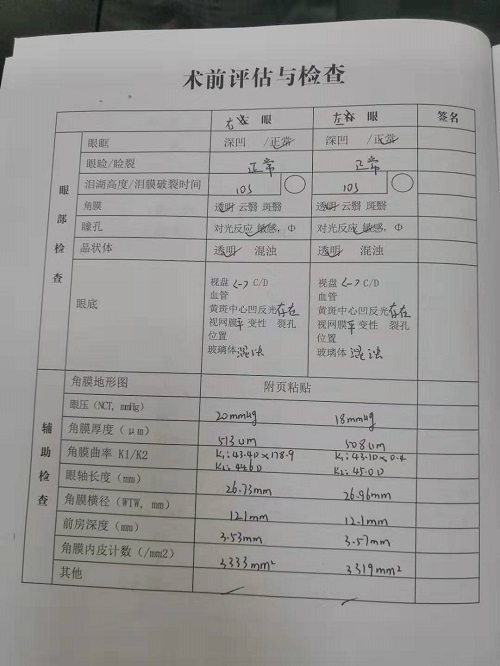 术前评估与检查
右 眼 左 眼 签名
眼部检查
眼眶 深凹 /正常 深凹 /正常
眼睑/睑裂 正常 正常
泪湖高度/泪膜破裂时间 10s 10s
角膜 透明 云翳 斑翳 透明 云翳 斑翳
瞳孔 对光反应 敏感, Φ 对光反应 敏感, Φ
晶状体 透明 混浊 透明 混浊
眼底
视盘 C/D 视盘 C/D
血管 血管
黄斑中心凹反光存在 黄斑中心凹反光存在
视网膜平 变性 裂孔 视网膜平 变性 裂孔
位置 位置
玻璃体混浊 玻璃体混浊
辅助检查
角膜地形图 附页粘贴
眼压(NCT, mmHg) 20mmHg 18mmHg
角膜厚度(μm) 513um 508um
角膜曲率 K1/K2 K1:43.40x178.9 K1:43.10x0.4
K2:44.6D K2:45.0D
眼轴长度(mm) 26.73mm 26.96mm
角膜横径(WTW, mm) 12.1mm 12.1mm
前房深度(mm) 3.53mm 3.57mm
角膜内皮计数(/mm2) 3333mm² 3319mm²
其他